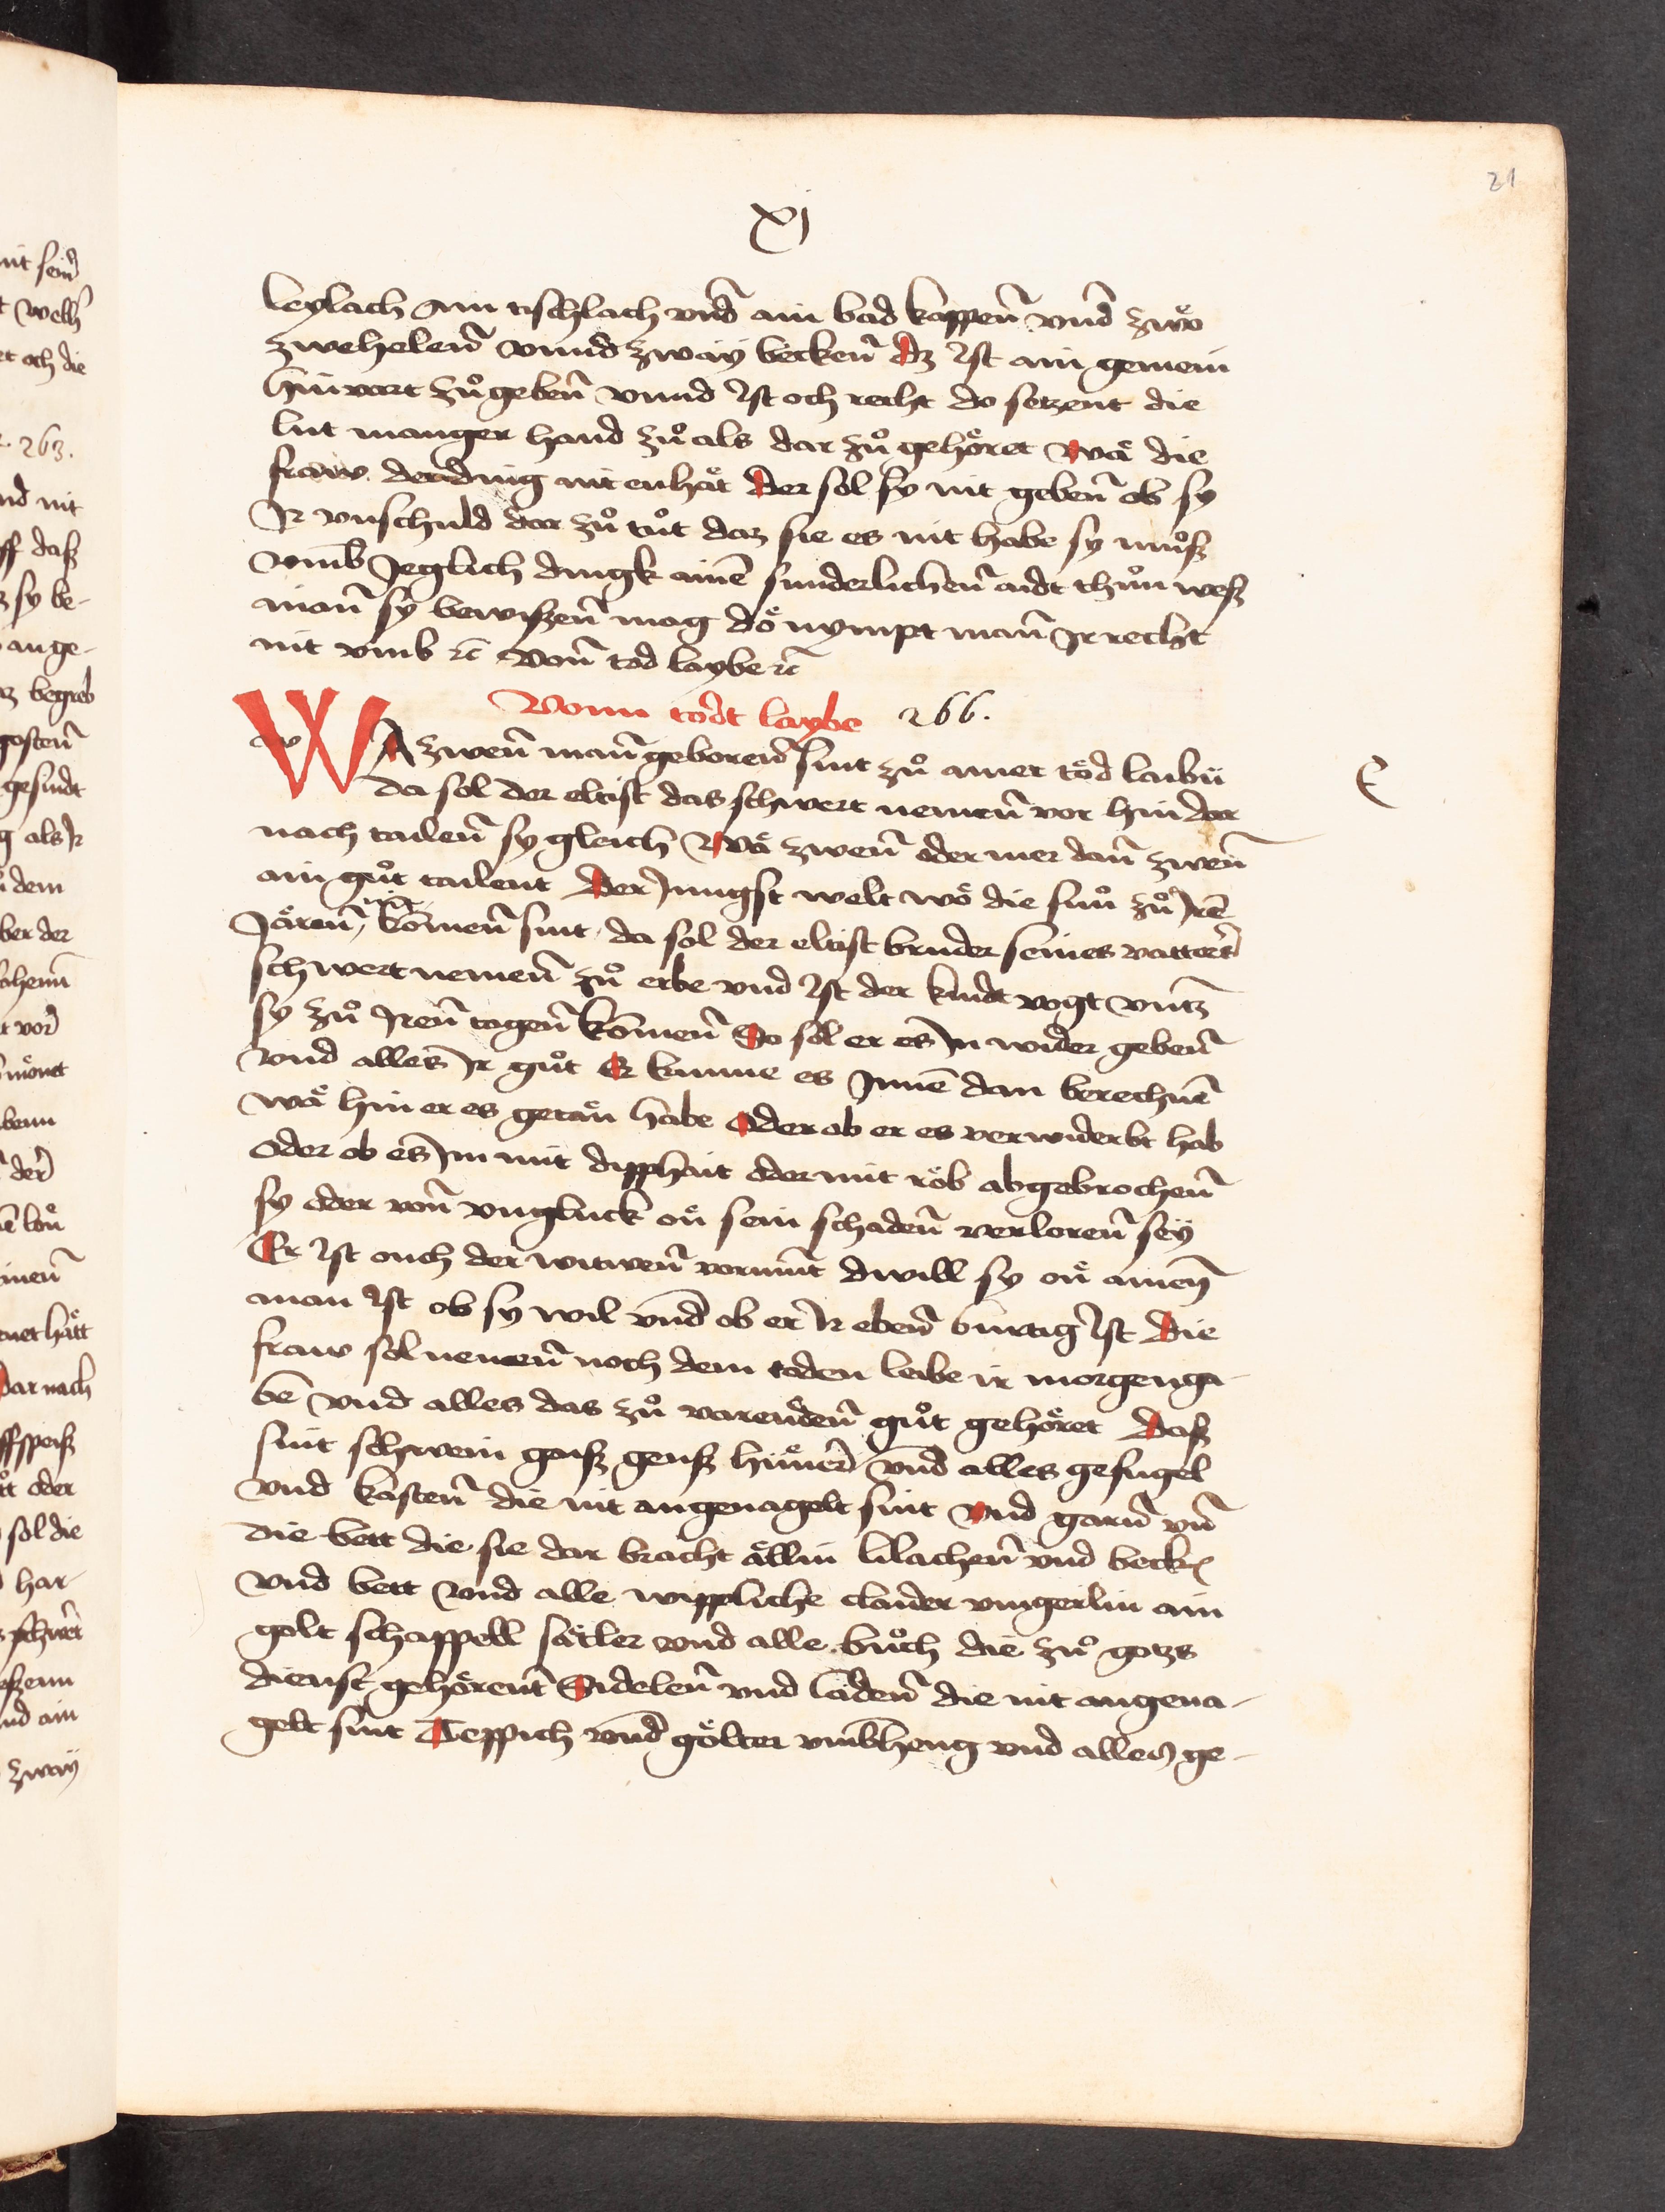 21
xj
leylach ain tischlach vnd̄ ain bad kappen̄ vnd̄ zwo᷑
zwehelen̄ vnnd zwaÿ becken̄ Dz Jst ain gemein
hin vart zů geben̄ vnnd Jst och recht do setzent die
lut manger hand zů als dar zů gehöret Wä die
fraw der ding nit enhät Der sol sy nit geben̄ ob sy
Jr vnschuld dar zů tůt daz sie es nit habe sy můß
vmb Jeglich dingk ainē sunderlichen̄ aidt thůn weß
man̄ sy bewißen̄ mag dö nympt man̄ Jr recht
nit vmb rc̄ Von̄ tod laybe rc̄
Vonn todt laybe 266.
w
WA zwen̄ man̄ geboren̄ sint zů ainer töd laibü
E
da sol der eltist das schwert nemen̄ vor hin dar
nach tailen̄ sy gleich Wä zwen̄ oder mer dan̄ zwen̄
ain gůt tailent Der Jungst welt wö die sun̊ zů Jrē
Jären̄ nit komen̄ sint da sol der eltist bruder seines vatters
schwert nemen̄ zů erbe vnd Jst der kindt vogt vntz
sy zů Jren̄ tagen̄ komen̄ So sol er es Jn wider geben̄
vnd alles Jr gůt Er kunne es Jnnē dan berechnē
wä hin er es getän habe Oder ob er es verwiderbt hab
oder ob es Jm mit dipphait oder mit röb abgebrochen̄
sy oder von̄ vngluck on̄ sein schaden̄ verloren̄ seÿ
Er Jst ouch der witwen̄ vormūt dwill sy on̄ ainen̄
man Jst ob sy wil vnd ob er Jr eben̄ burtig Jst Die
fraw sol nemen̄ noch dem toden leibe ir morgenga-
bē vnd alles das zů varenden̄ gůt gehöret Daß
sint schwein gaiß genß hüner̄ vnd alles gefugel
vnd kasten̄ die nit angenagelt sint Vnd garn̄ vn̄
die bett die sie dar bracht ällin lilachen̄ vnd beckē
vnd bett vnd alle wippliche claider vingerlin ain
golt schappell sätler vnd alle bůch die zů gotzs
dienst gehörent Sidelen̄ vnd laden̄ die nit angena-
gelt sint Teppich vnd gölter vmbheng vnd alles ge-